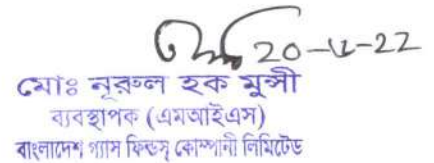 20-12-22
মোঃ নূরুল হক মুন্সী
ব্যবস্থাপক (এমআইএস)
বাংলাদেশ গ্যাস ফিল্ডস্ কোম্পানী লিমিটেড